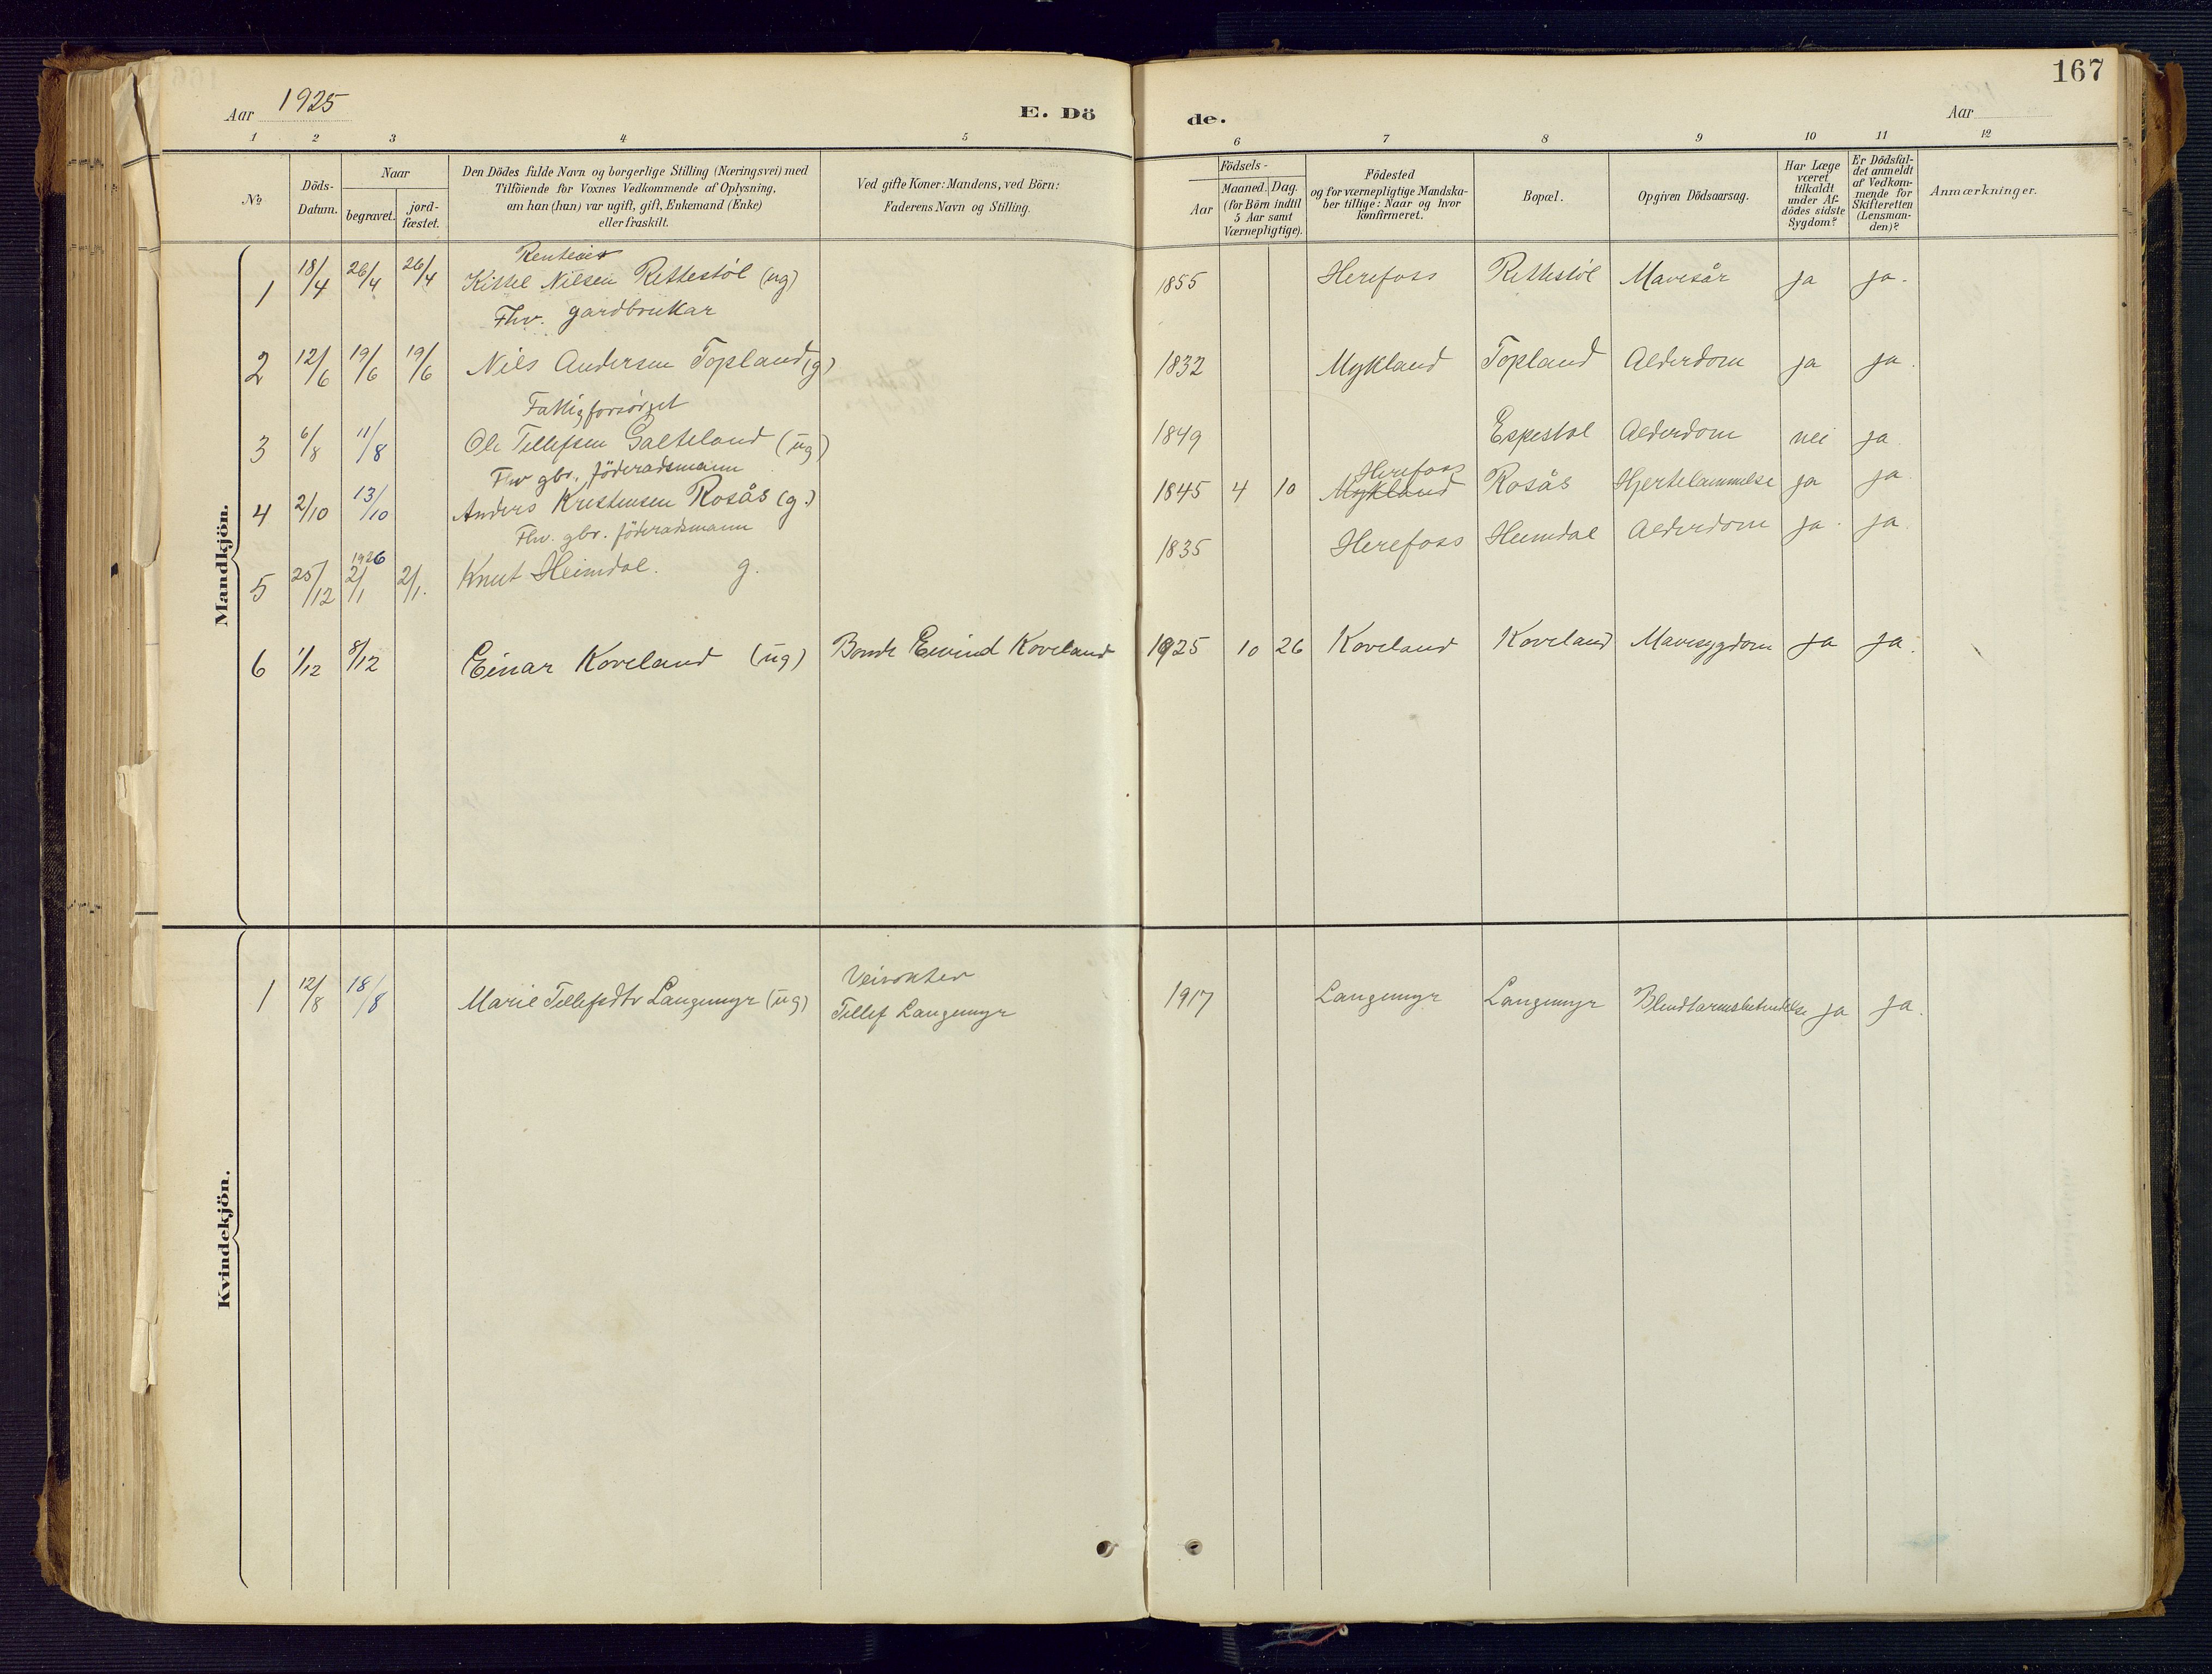 167
Aar 1925
E. Dö
de.
Aar
1 2 3 4 5 6 7 8 9 10 11 12
No
Döds-
Datum.
Naar
begravet.
jord-
fæstet.
Den Dödes fulde Navn og borgerlige Stilling (Næringsvei) med
Tilföiende for Voxnes Vedkommende af Oplysning,
om han (hun) var ugift, gift, Enkemand (Enke)
eller fraskilt.
Ved gifte Koner: Mandens, ved Börn:
Faderens Navn og Stilling.
Födsels-
Aar
Maaned. Dag.
(for Börn indtil
5 Aar samt
Værnepligtige).
Födested
og for værnepligtige Mandska-
ber tillige: Naar og hvor
konfirmeret.
Bopæl.
Opgiven Dödsaarsag.
Har Læge
været
tilkaldt
under Af-
dödes sidste
Sygdom?
Er Dödsfal-
det anmeldt
af Vedkom-
mende for
Skifteretten
(Lensman-
den)?
Anmærkninger.
Mandkjön.
Renteier
1 18/4 26/4 26/4 Kittel Nilsen Rettestöl (ug) 1855 Herefoss Rettestöl Mavesår ja ja.
Fhv. gardbrukar
2 12/6 19/6 19/6 Nils Andersen Topland (g) 1832 Mykland Topland Alderdom ja ja.
Fattigforsörget
3 6/8 11/8 Ole Tellefsen Galteland (ug) 1849 Espestol Alderdom nei ja
Fhv gbr. föderadsmann
Herefoss
4 2/10 13/10 Anders Kristensen Rosås (g.) 1845 4 10 Mykland Rosås Hjertelammelse ja ja
Fhv. gbr. föderadsmann
1926
5 25/12 2/1 2/1. Knut Heimdal. g. 1835 Herefoss Heimdal Alderdom ja. ja
6 1/12 8/12 Einar Koveland (ug) Bonde Eivind Koveland 1925 10 26 Koveland Koveland Mavesygdom ja ja.
Kvindekjön.
Veivokter
1 12/8 18/8 Marie Tellefsdtr Langemyr (ug) Tellef Langemyr 1917 Langemyr Langemyr Blindtarmsbetendelse ja ja.